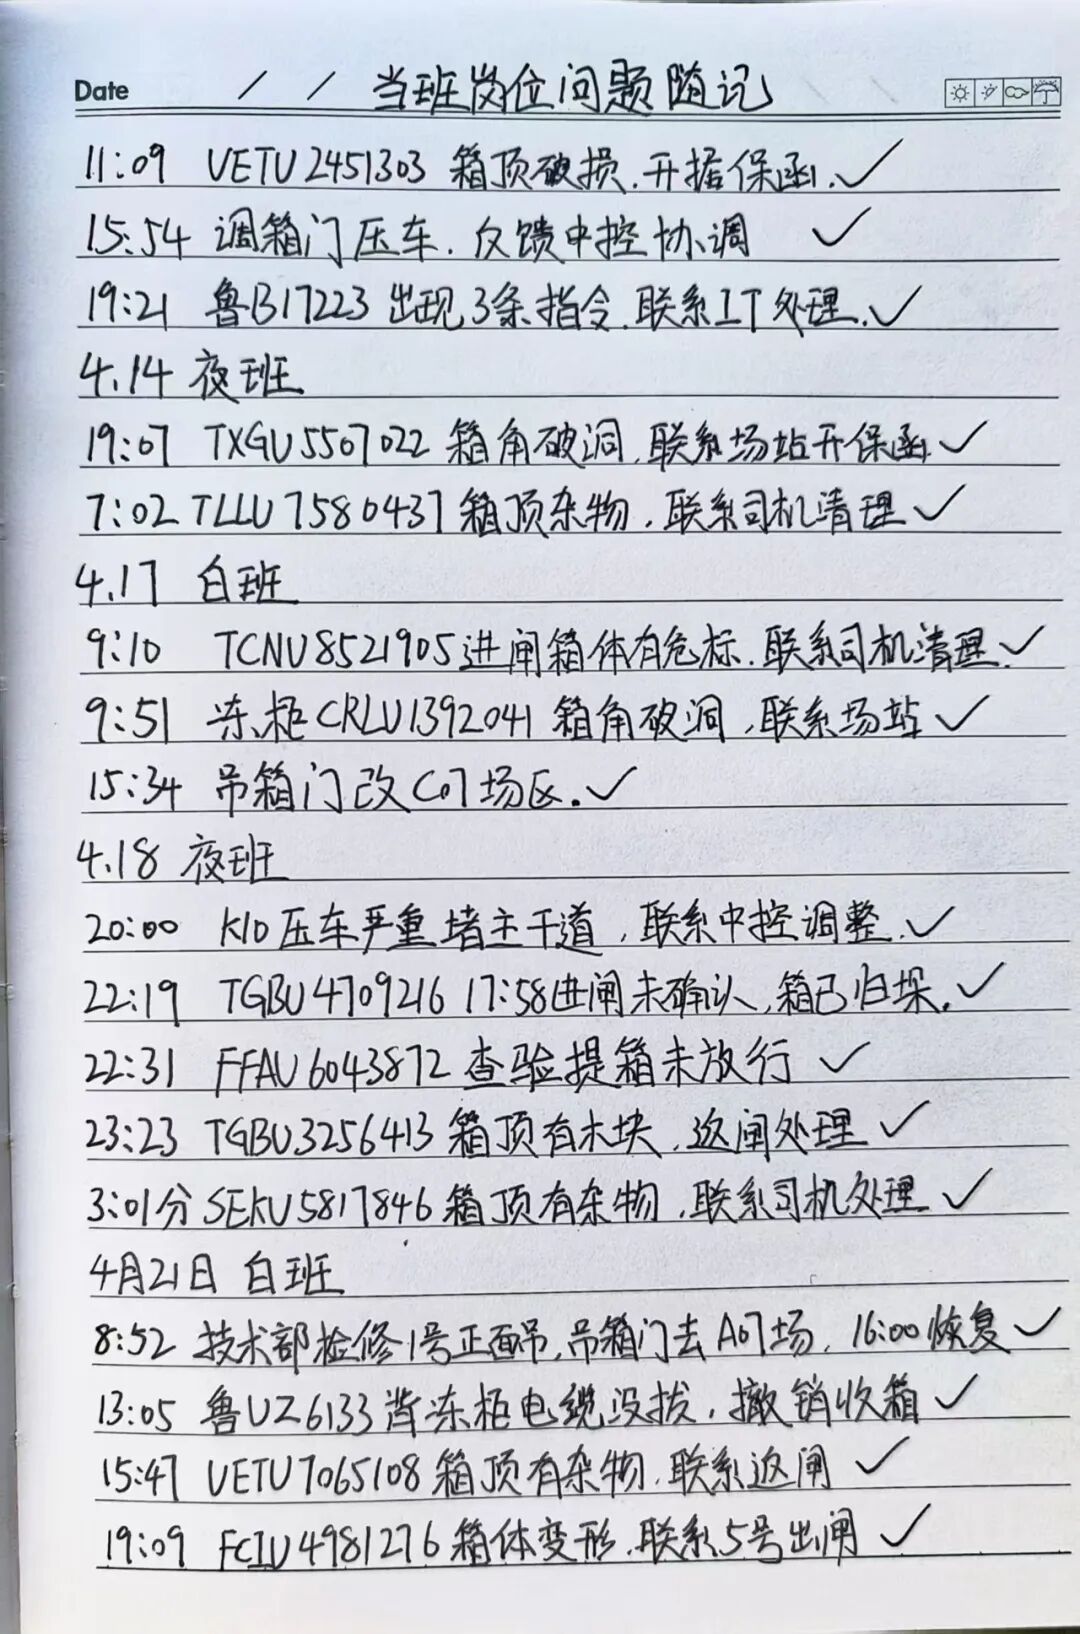 Date / / 当班岗位问题随记
11:09 VETU2451303 箱顶破损.开据保函.✓
15:54 调箱门压车.反馈中控协调 ✓
19:21 鲁B17223 出现3条指令.联系IT处理.✓
4.14 夜班
19:07 TXGU5507022 箱角破洞.联系场站开保函.✓
7:02 TLLU7580437 箱顶杂物.联系司机清理✓
4.17 白班
9:10 TCNU8521905进闸箱体有危标.联系司机清理.✓
9:51 冻柜CRLU1392041 箱角破洞,联系场站✓
15:34 吊箱门改C07场区.✓
4.18 夜班
20:00 K10压车严重堵主干道,联系中控调整.✓
22:19 TGBU4709216 17:58进闸未确认,箱已归垛.✓
22:31 FFAU6043872 查验提箱未放行 ✓
23:23 TGBU3256413 箱顶有木块,返闸处理✓
3:01分 SEKU5817846 箱顶有杂物,联系司机处理✓
4月21日 白班
8:52 技术部检修1号正面吊,吊箱门去A07场, 16:00恢复✓
13:05 鲁UZ6133 冻柜电缆没拔,撤销收箱✓
15:47 VETU7065108箱顶有杂物.联系返闸 ✓
19:09 FCIU4981276 箱体变形.联系5号出闸 ✓